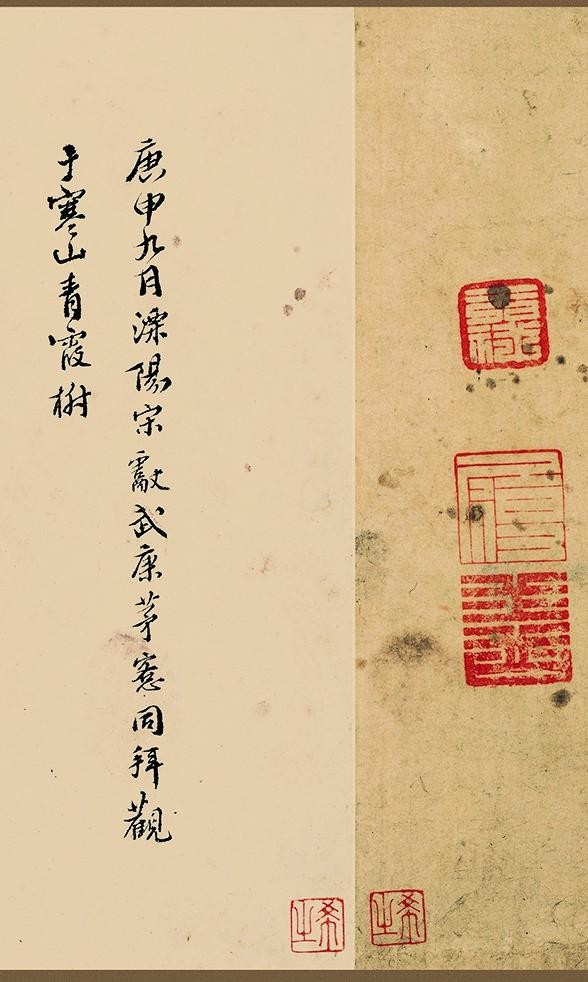 庚申九月溧陽宋獻武康茅窓同拜觀
于寒山青霞榭